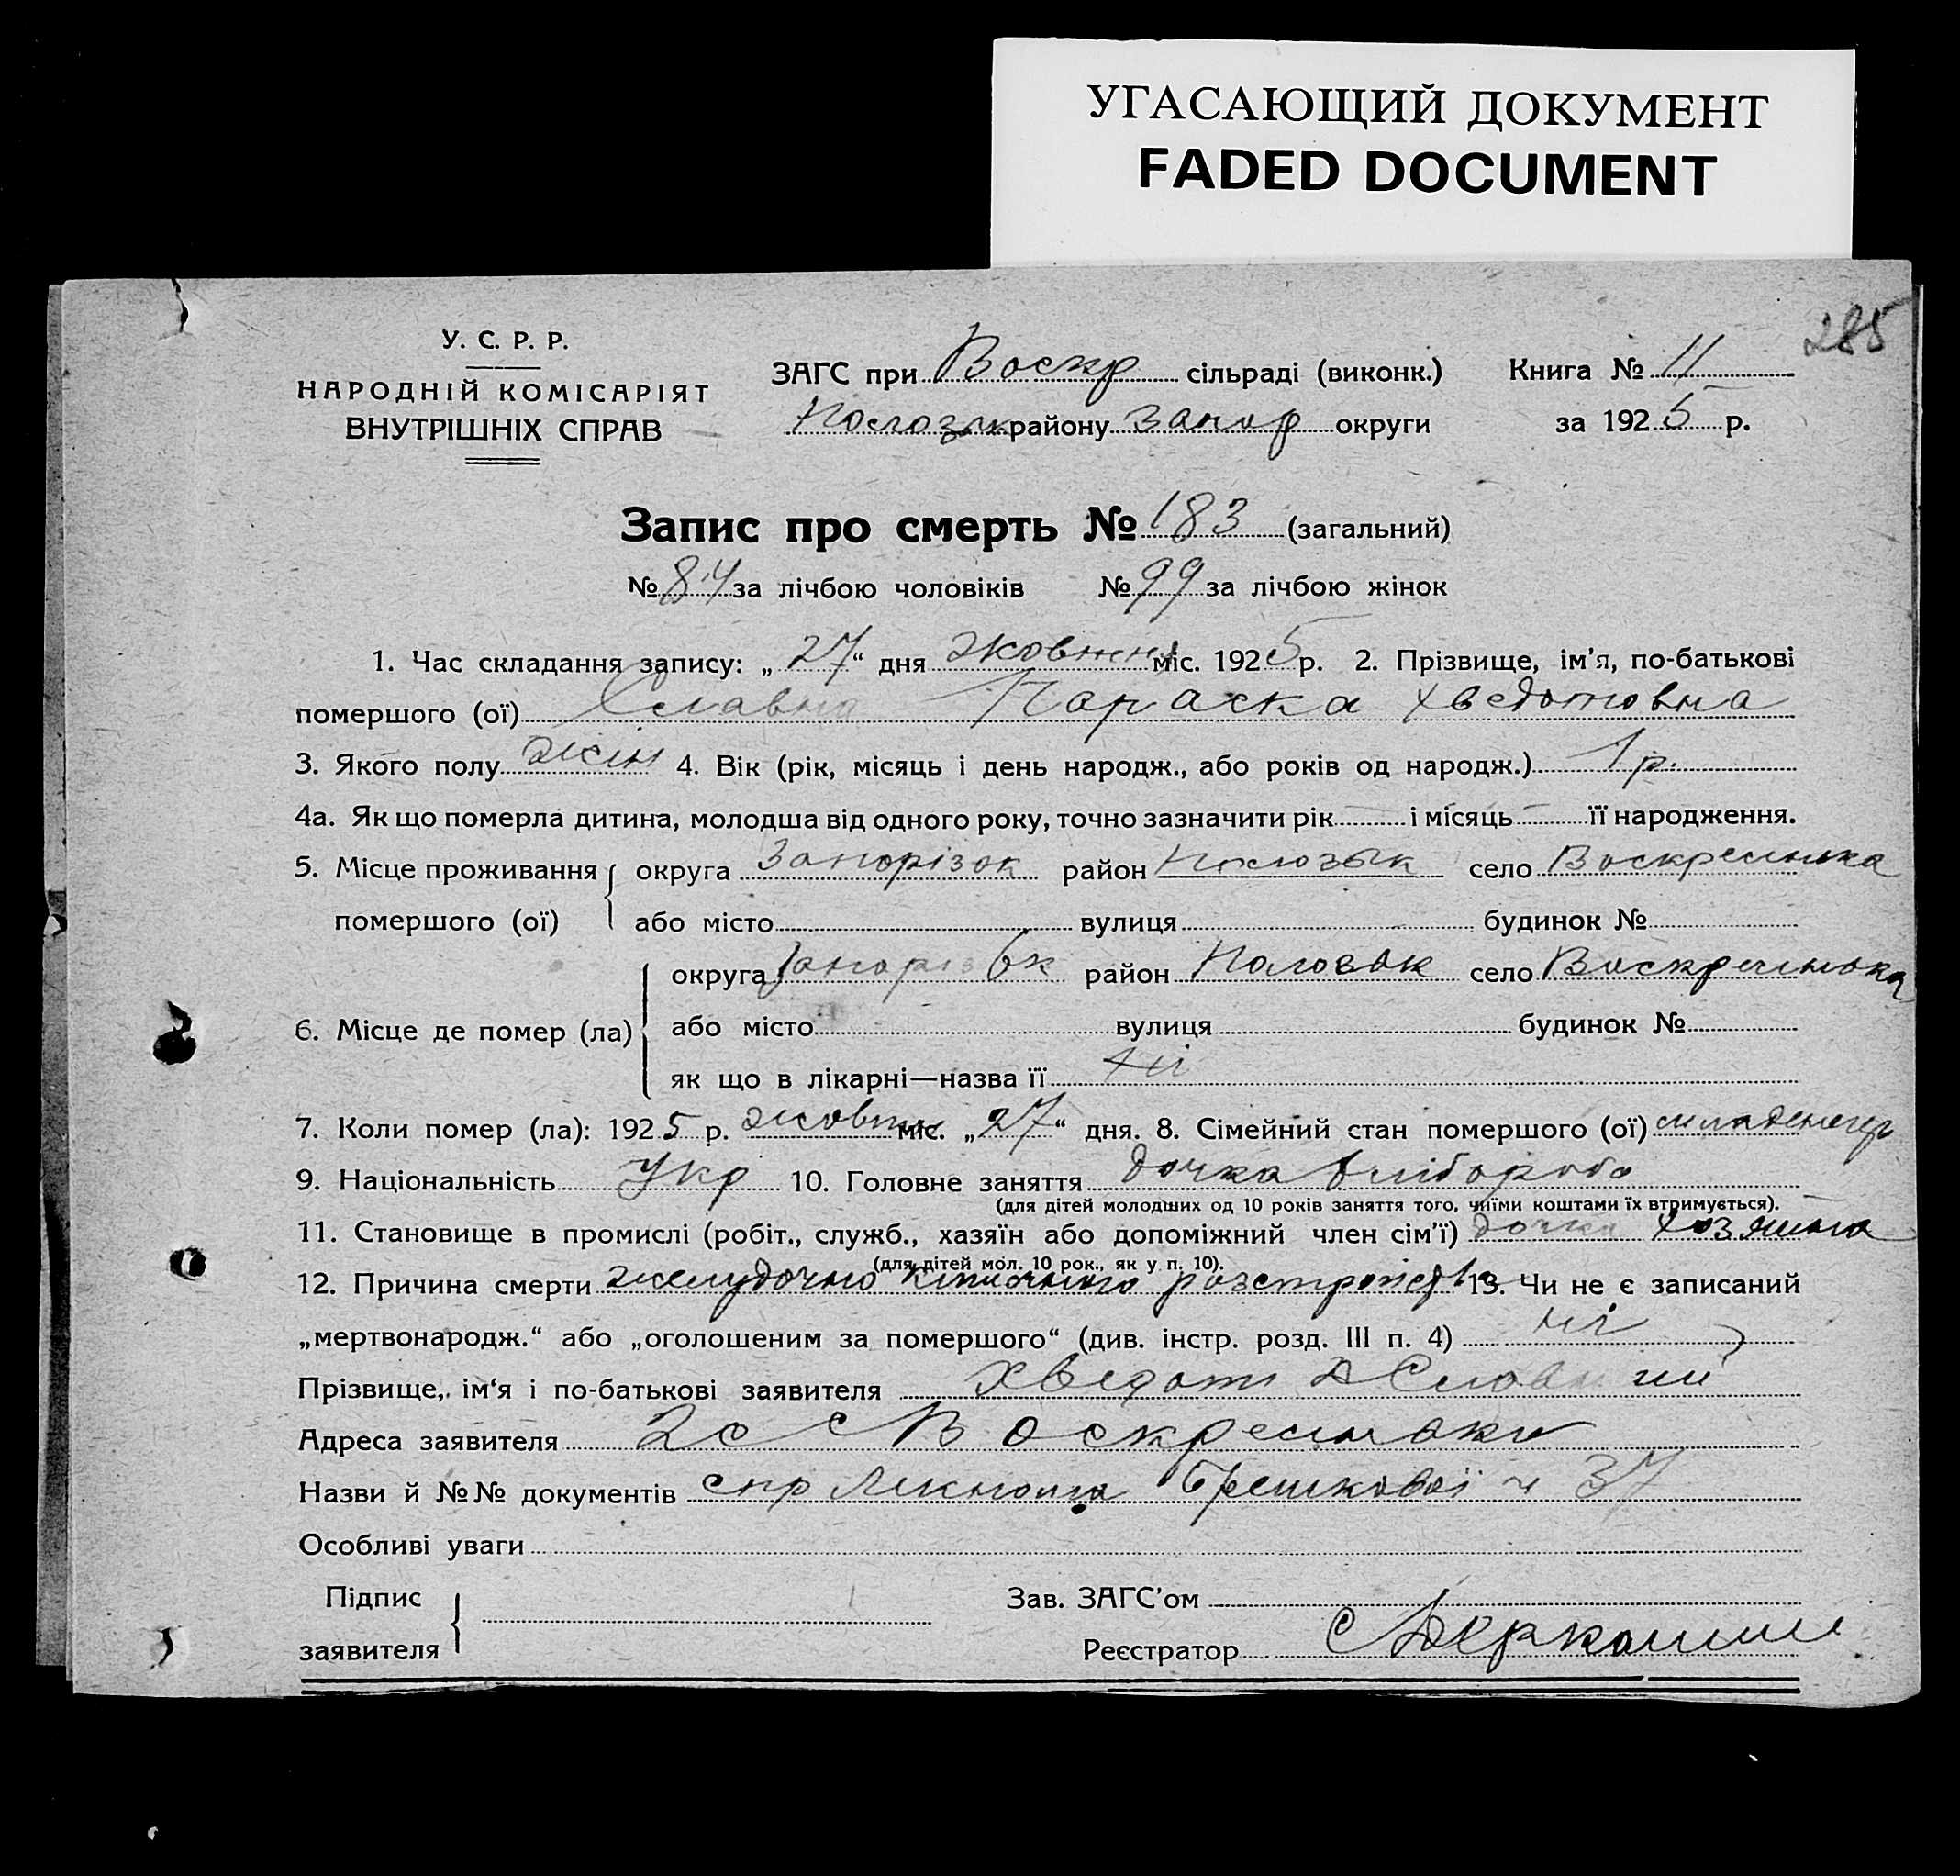 УГАСАЮЩИЙ ДОКУМЕНТ
FADED DOCUMENT
285
У. С. Р. Р.
НАРОДНІЙ КОМІСАРІЯТ
ВНУТРІШНІХ СПРАВ
ЗАГС при Воскр сільраді (виконк.)
Пологзк району Запор округи
Книга № 11
за 1925 р.
Запис про смерть № 183 (загальний)
№ 84 за лічбою чоловіків № 99 за лічбою жінок
1. Час складання запису: „27“ дня жовтня міс. 1925 р. 2. Прізвище, ім'я, по-батькові
помершого (ої) Славна Параска Хведотовна
3. Якого полу жін 4. Вік (рік, місяць і день народж., або років од народж.) 1 р.
4а. Як що померла дитина, молодша від одного року, точно зазначити рік — і місяць — її народження.
5. Місце проживання помершого (ої) { округа Запорізок район село Воскресенька
або місто вулиця будинок №
6. Місце де помер (ла) { округа район село Воскресенька
або місто вулиця будинок №
як що в лікарні—назва її ні
7. Коли помер (ла): 1925 р. жовтн міс. „27“ дня. 8. Сімейний стан помершого (ої) младенець
9. Національність Укр 10. Головне заняття дочка хлібороба
(для дітей молодших од 10 років заняття того, чиїми коштами їх втримується).
11. Становище в промислі (робіт., служб., хазяїн або допоміжний член сім'ї) дочка хозяина
(для дітей мол. 10 рок., як у п. 10).
12. Причина смерти желудочно кишочного розстройства 13. Чи не є записаний
„мертвонародж.“ або „оголошеним за помершого“ (див. інстр. розд. III п. 4) ні
Прізвище, ім'я і по-батькові заявителя Хведот Славний
Адреса заявителя с Воскресенька
Назви й №№ документів спр Брешкової ч 37
Особливі уваги
Підпис заявителя {
Зав. ЗАГС'ом
Реєстратор